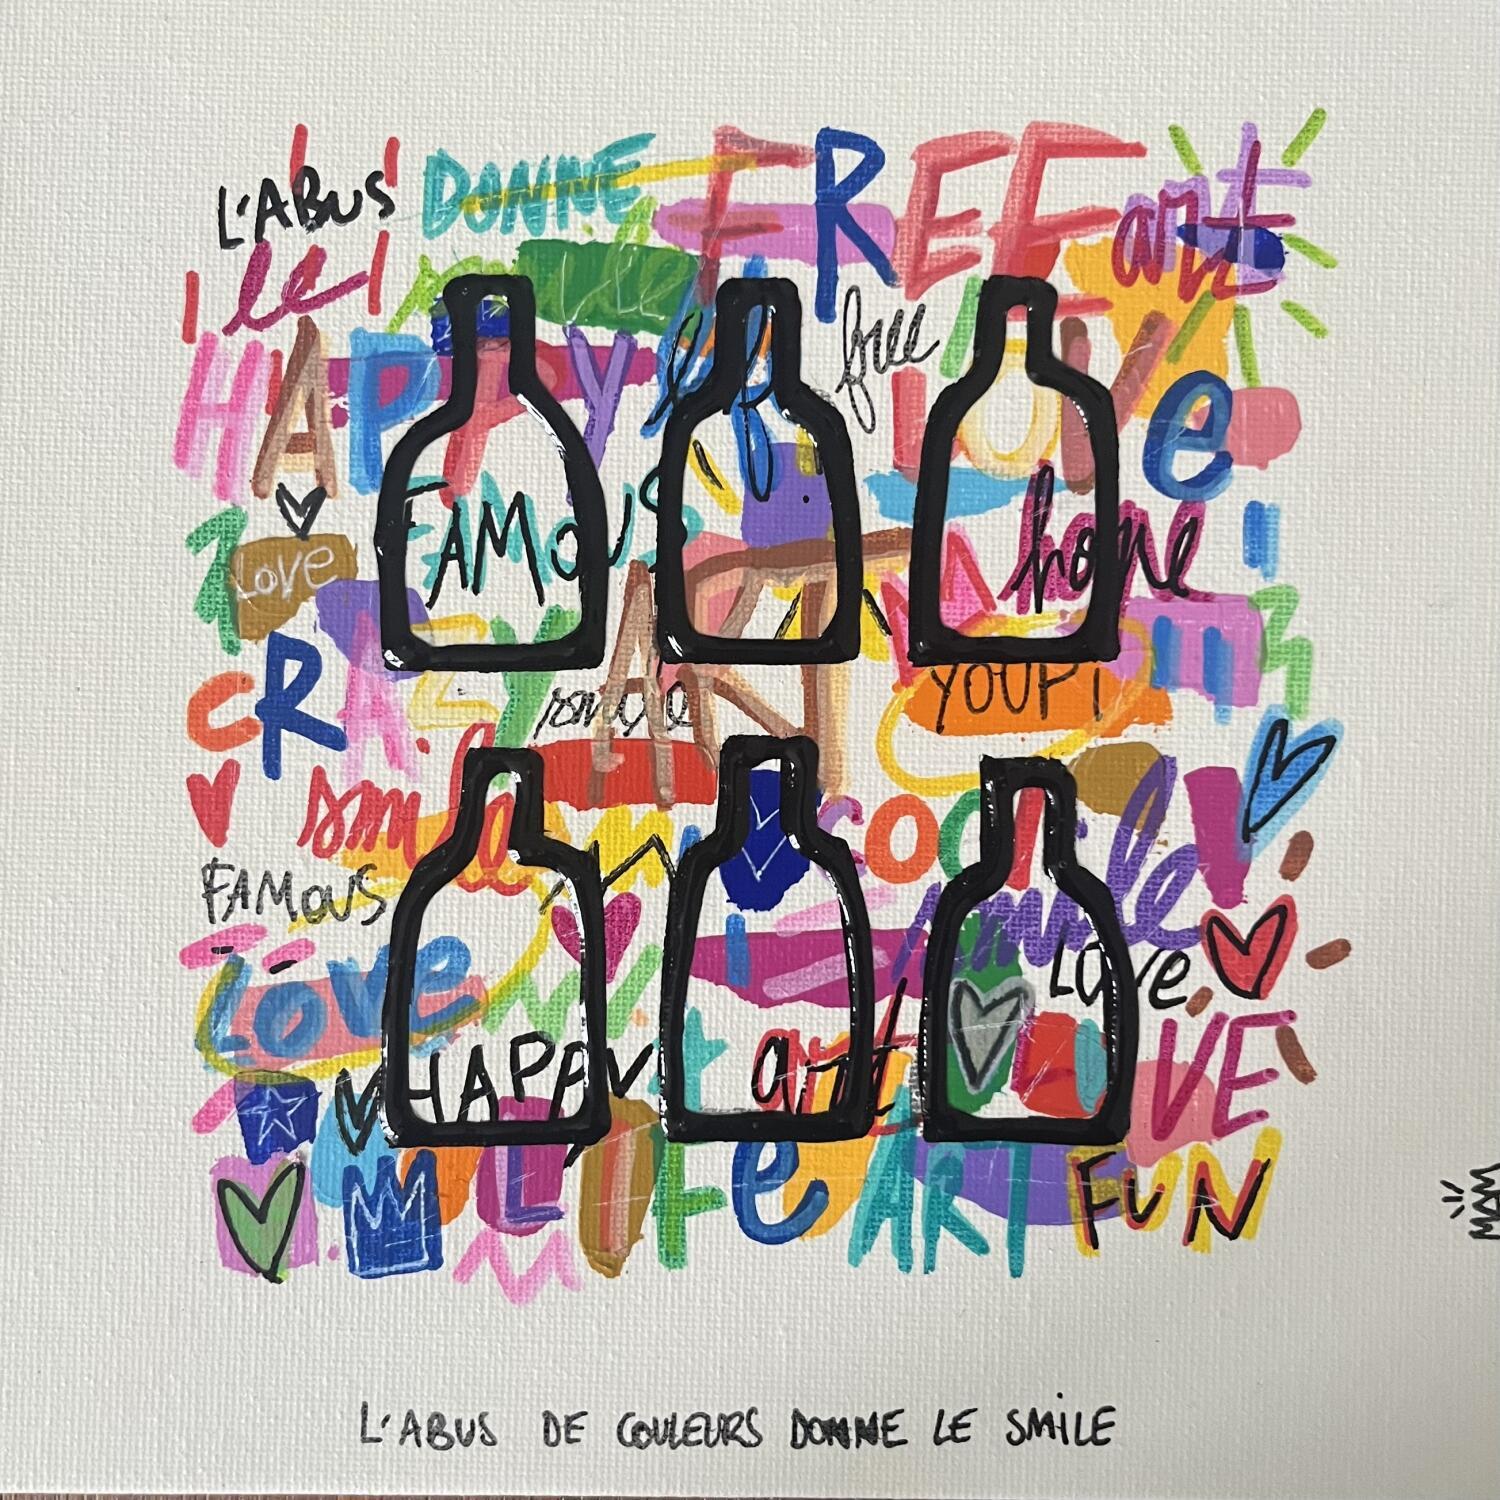 L'ABUS DONNE FREE art
le
free
HAPPY LOVe
FAMOUS home
LOVE
CRAZY ART
YOUPI
smile
smile
FAMOUS smile
LOVE LOVe
HAPPY art LOVE
LIFe ART FUN
L'ABUS DE COULEURS DONNE LE SMILE